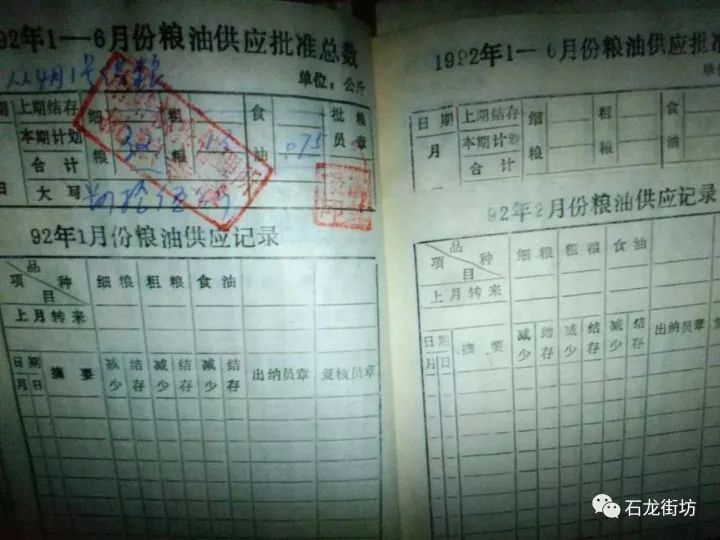 92年1—6月份粮油供应批准总数
4月1号
单位:公斤
期 上期结存 细 粗 食 批 粮
本期计划 32 13 .075 员
合计 粮 粮 油 章
日 大写
92年1月份粮油供应记录
品种
项目 细粮 粗粮 食油
上月转来
日期 摘要 减少 结存 减少 结存 减少 结存 出纳员章 复核员章
月 日
1992年1—6月份粮油供应批准
单位
日期 上期结存 细 粗 食
月 本期计划
合计 粮 粮 油
日 大写
92年2月份粮油供应记录
品种
项目 细粮 粗粮 食油
上月转来
日期 摘要 减少 结存 减少 结存 减少 结存 出纳员章
月 日
石龙街坊